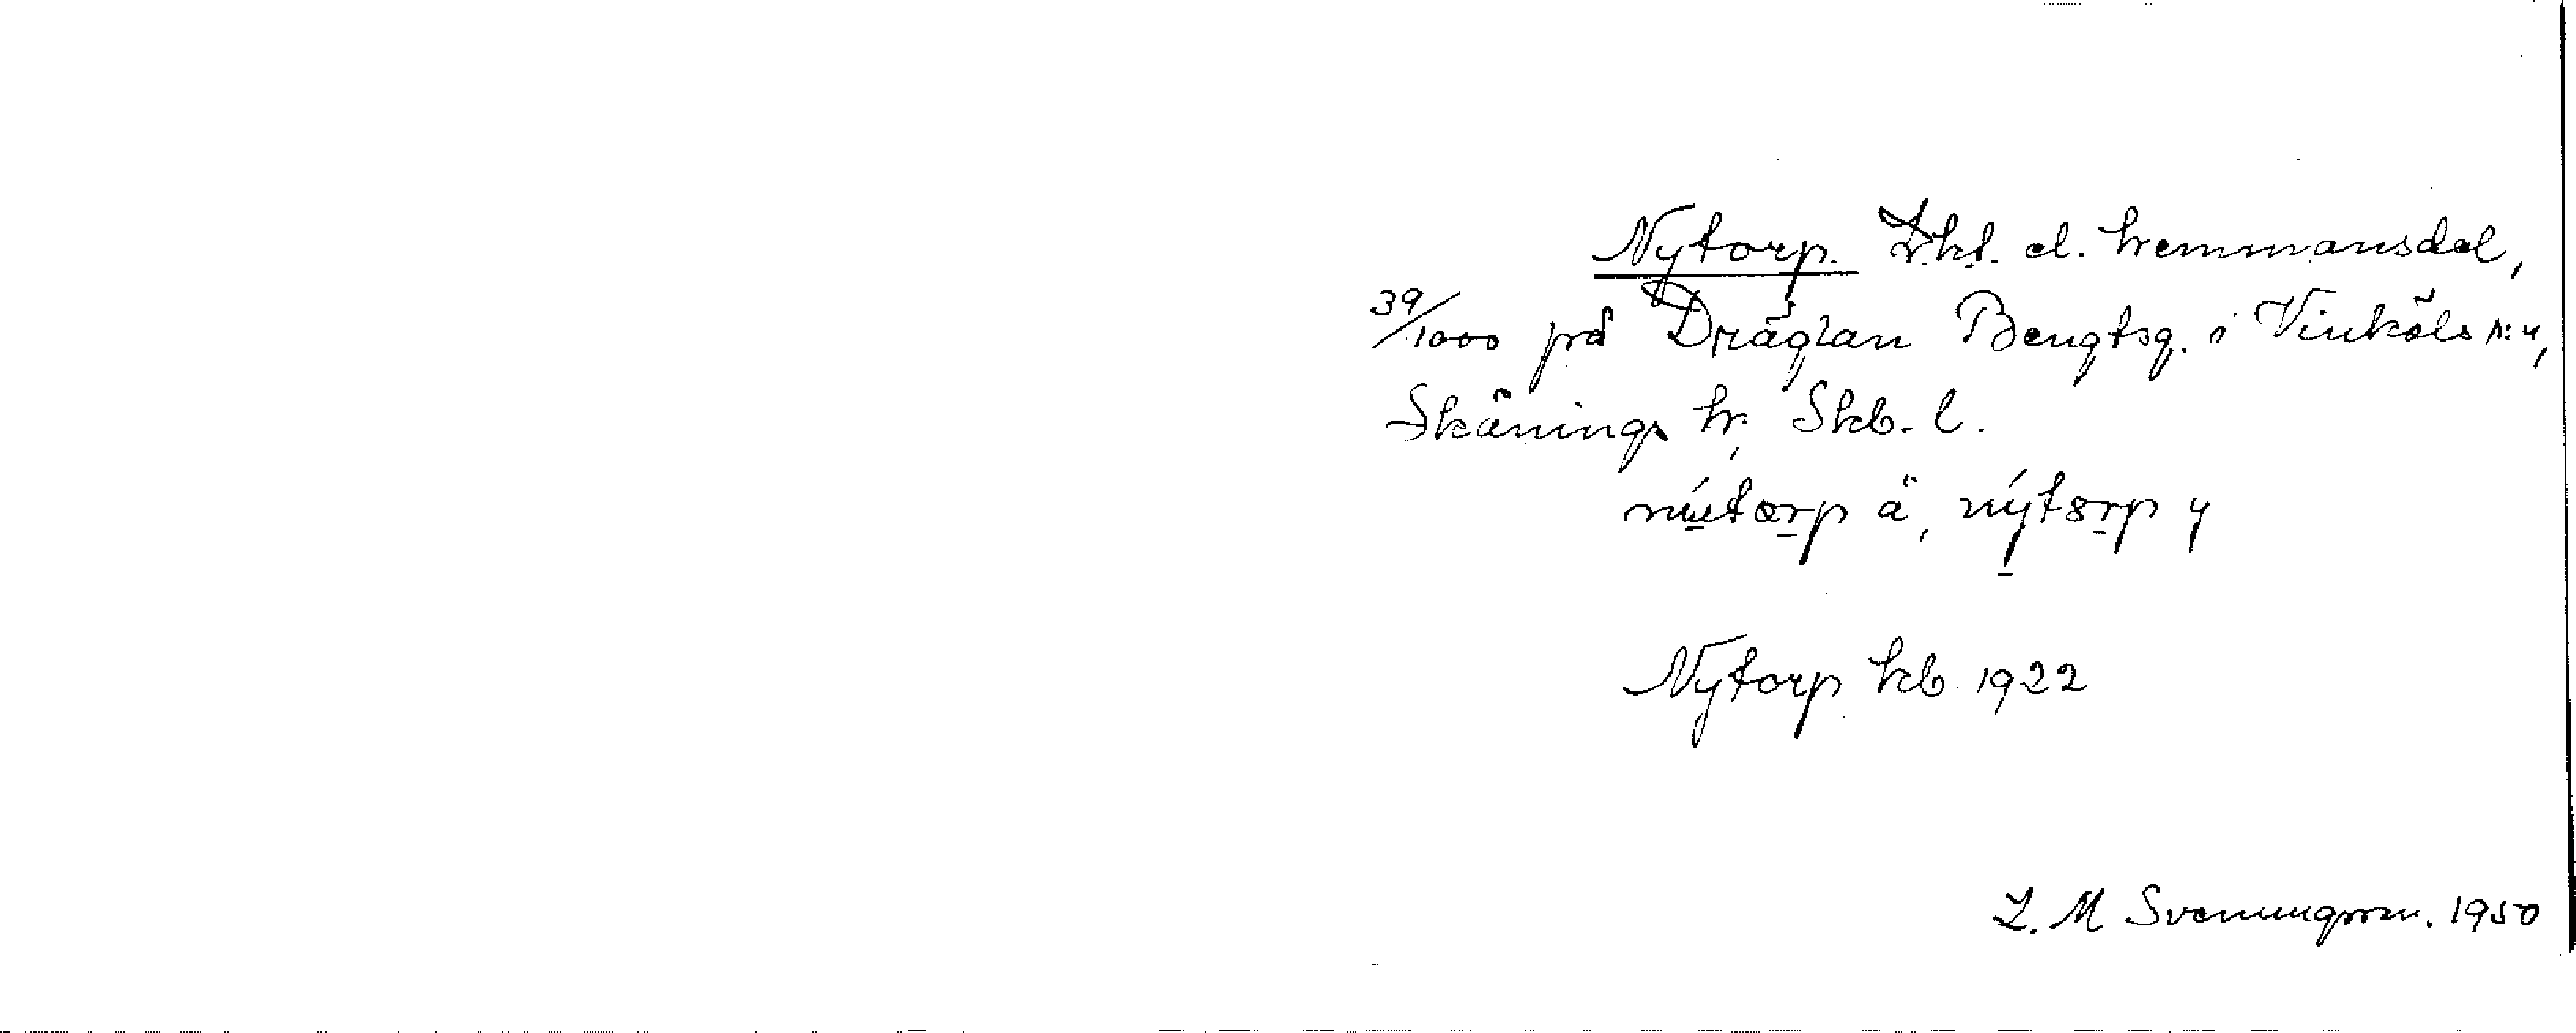 Nytorp. Lht. el. hemmansdel,
39/1000 på Dräglan Bengtsg. i Vinköls N:4,
Skånings hr, Skb. l.
nýtorp ä, nýtorp y
Nytorp kb 1922
L. M Svenungsson. 1950